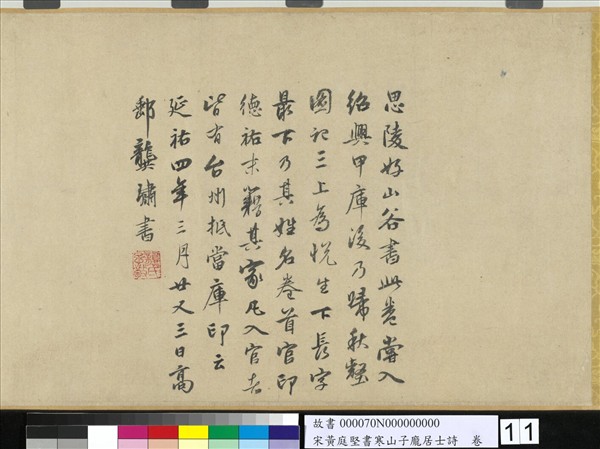 思陵好山谷書此卷嘗入
紹興甲庫後乃歸秋壑
圖記三上為悅生下長字
最下乃其姓名卷首官印
德祐末籍其家凡入官者
皆有台州抵當庫印云
延祐四年三月廿又三日高
郵龔璛書
故書 000070N000000000
宋黃庭堅書寒山子龐居士詩 卷
11